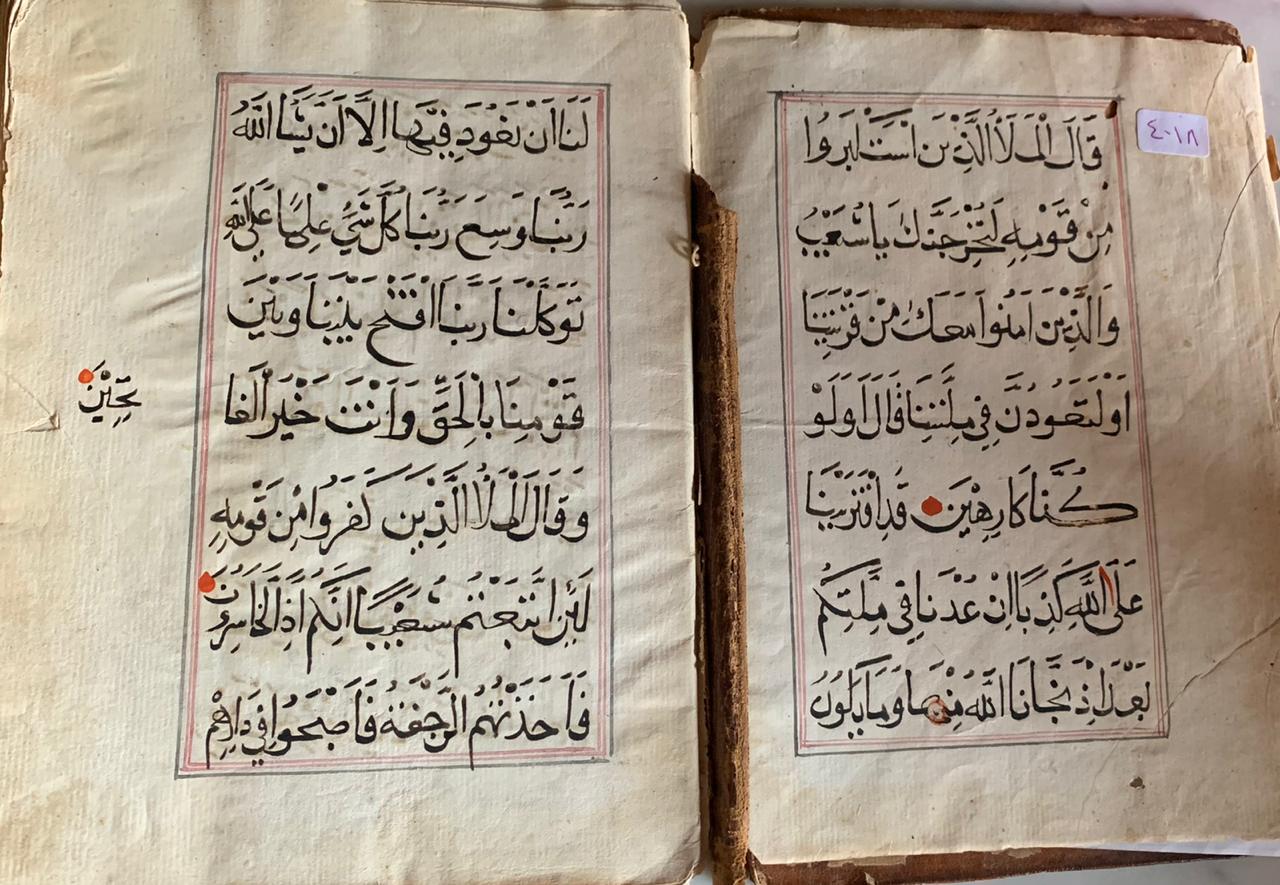 ٤٠١٨
قَالَ الْمَلَأُ الَّذِينَ اسْتَكْبَرُوا
مِنْ قَوْمِهِ لَنُخْرِجَنَّكَ يَا شُعَيْبُ
وَالَّذِينَ امَنُوا مَعَكَ مِنْ قَرْيَتِنَا
اَوْ لَتَعُودُنَّ فِي مِلَّتِنَا قَالَ اَوَلَوْ
كُنَّا كَارِهِينَ قَدِ افْتَرَيْنَا
عَلَى اللَّهِ كَذِبًا اِنْ عُدْنَا فِي مِلَّتِكُمْ
بَعْدَ اِذْ نَجَّانَا اللَّهُ مِنْهَا وَمَا يَكُونُ
لَنَا اَنْ نَعُودَ فِيهَا اِلَّا اَنْ يَشَا اللَّهُ
رَبُّنَا وَسِعَ رَبُّنَا كُلَّ شَيْءٍ عِلْمًا عَلَى اللَّهِ
تَوَكَّلْنَا رَبَّنَا افْتَحْ بَيْنَنَا وَبَيْنَ
قَوْمِنَا بِالْحَقِّ وَاَنْتَ خَيْرُ الْفَا
تِحِينَ
وَقَالَ الْمَلَأُ الَّذِينَ كَفَرُوا مِنْ قَوْمِهِ
لَئِنِ اتَّبَعْتُمْ شُعَيْبًا اِنَّكُمْ اِذًا لَخَاسِرُونَ
فَاَخَذَتْهُمُ الرَّجْفَةُ فَاَصْبَحُوا فِي دَارِهِمْ